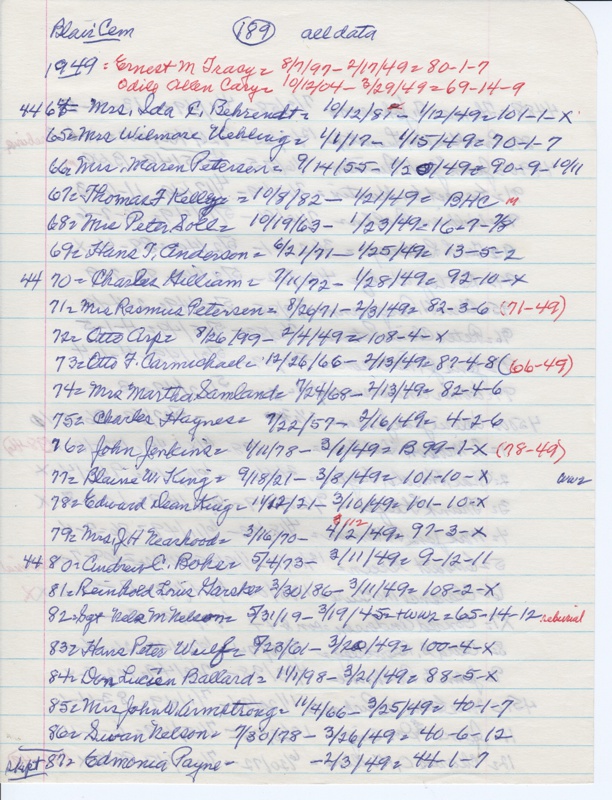 Blair Cem (189) all data
1949 = Ernest M Tracy = 8/7/97 - 2/17/49 = 80-1-7
Odile Allen Cary = 10/12/04 - 3/29/49 = 69-14-9
44 64 = Mrs. Ida C. Behrendt = 10/12/81 - 1/12/49 = 101-1-X
65 = Mrs Wilmore Uehling = 4/1/17 - 1/15/49 = 70-1-7
66 = Mrs. Maren Petersen = 9/14/55 - 1/20/49 = 90-9-10/11
67 = Thomas F Kelley = 10/8/82 - 1/21/49 = BHC M
68 = Mrs Peter Soll = 10/19/63 - 1/23/49 = 16-7-7/8
69 = Hans T. Anderson = 6/21/71 - 1/25/49 = 13-5-2
44 70 = Charles Gilliam = 7/11/72 - 1/28/49 = 92-10-X
71 = Mrs Rasmus Petersen = 8/26/71 - 2/3/49 = 82-3-6 (71-49)
72 = Otto Arp = 8/26/99 - 2/4/49 = 108-4-X
73 = Otto F. Carmichael = 12/26/66 - 2/13/49 = 87-4-8 (66-49)
74 = Mrs Martha Samland = 7/24/68 - 2/13/49 = 82-4-6
75 = Charles Haynes = 7/22/57 - 2/16/49 = 4-2-6
76 = John Jenkins = 1/11/78 - 3/1/49 = B 99-1-X (78-49)
77 = Blaine W. King = 9/18/21 - 3/8/49 = 101-10-X WW2
78 = Edward Dean King = 11/12/21 - 3/10/49 = 101-10-X
79 = Mrs. J H Nearhood = 3/16/70 - 4/2/49 = 97-3-X
44 80 = Andrew C. Boker = 5/4/73 - 3/11/49 = 9-12-11
81 = Reinhold Louis = 3/30/86 - 3/11/49 = 108-2-X
82 = Sgt Nels M Nelson = 5/31/19 - 3/19/45 = + WW2 = 65-14-12 reburial
83 = Hans Peter Wulf = 5/23/61 - 3/20/49 = 100-4-X
84 = Don Lucien Ballard = 11/1/98 - 3/21/49 = 88-5-X
85 = Mrs John W. Armstrong = 11/4/66 - 3/25/49 = 40-1-7
86 = Swan Nelson = 7/30/78 - 3/26/49 = 40-6-12
skipt 87 = Edmonia Payne = -2/3/49 = 44-1-7